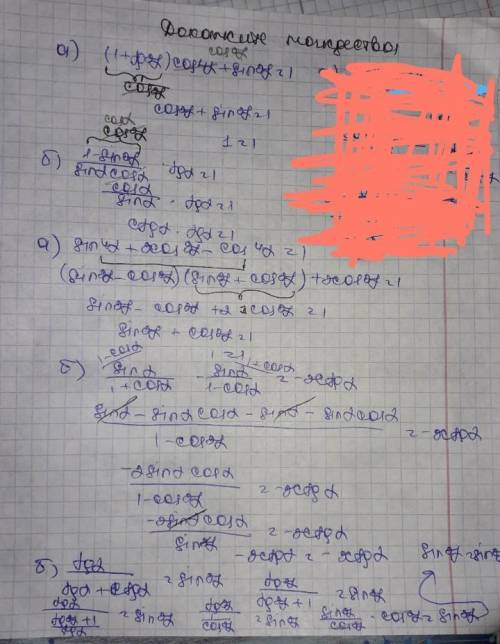 Докажите тождества
а) (1+tg²α)cos⁴α + sin²α = 1
cos²α
cos²α + sin²α = 1
1 = 1
cos²α
б) 1-sin²α / sinα cosα · tgα = 1
cosα / sinα · tgα = 1
ctgα · tgα = 1
а) sin⁴α + 2cos²α - cos⁴α = 1
(sin²α - cos²α)(sin²α + cos²α) + 2cos²α = 1
sin²α - cos²α + 2cos²α = 1
sin²α + cos²α = 1
1 = 1
б) sinα / 1+cosα - sinα / 1-cosα = -2ctgα
sinα - sinα cosα - sinα - sinα cosα / 1-cos²α = -2ctgα
-2sinα cosα / 1-cos²α = -2ctgα
-2sinα cosα / sin²α = -2ctgα
-2ctgα = -2ctgα
б) tgα / tgα + ctgα = sin²α
tg²α / tg²α + 1 = sin²α
sin²α / cos²α · cos²α = sin²α
sin²α = sin²α